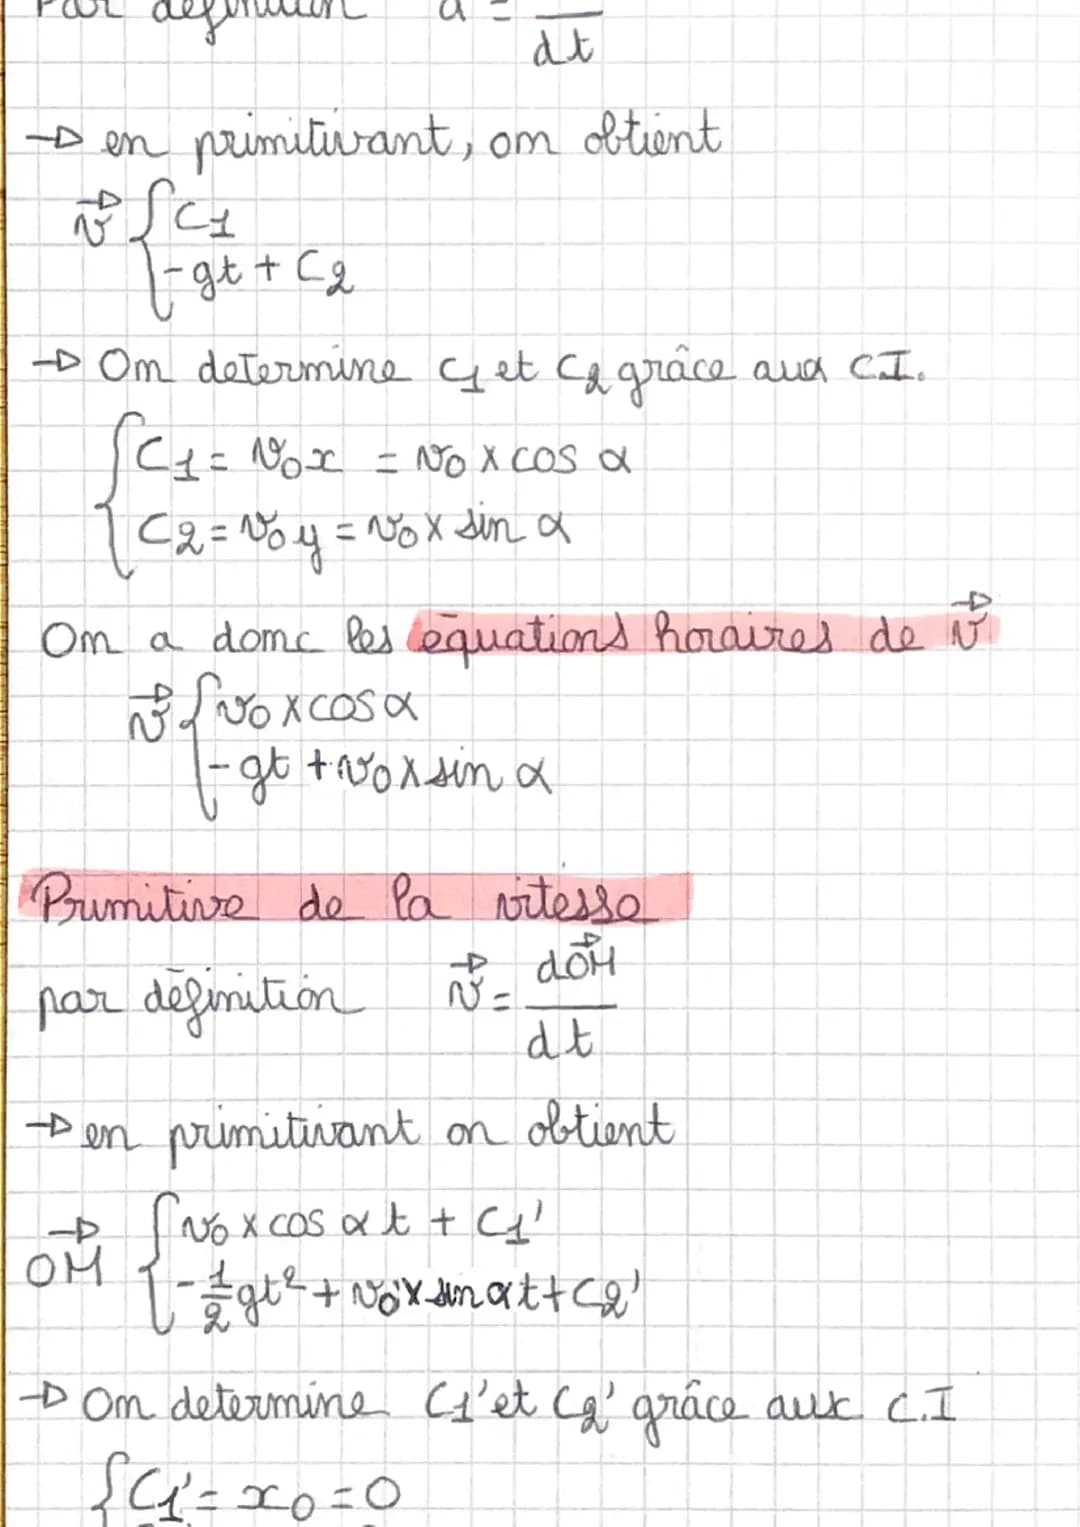 Par définition a = 
dt
→ en primitivant, on obtient
v⃗ { C1
-gt + C2
→ On determine C1 et C2 grâce aux CI.
{ C1 = v0x = v0 x cos α
C2 = v0y = v0 x sin α
On a donc les équations horaires de v⃗
v⃗ { v0 x cos α
-gt + v0 x sin α
Primitive de la vitesse
par définition v⃗ = dOM⃗
dt
→ en primitivant on obtient
OM⃗ { v0 x cos α t + C1'
-1/2 gt² + v0 x sin α t + C2'
→ On determine C1' et C2' grâce aux C.I
{ C1' = x0 = 0